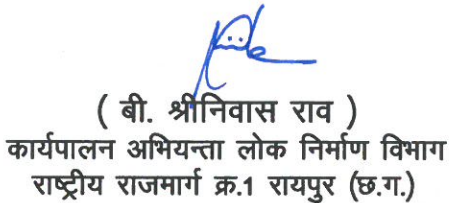 ( बी. श्रीनिवास राव )
कार्यपालन अभियन्ता लोक निर्माण विभाग
राष्ट्रीय राजमार्ग क्र.1 रायपुर (छ.ग.)